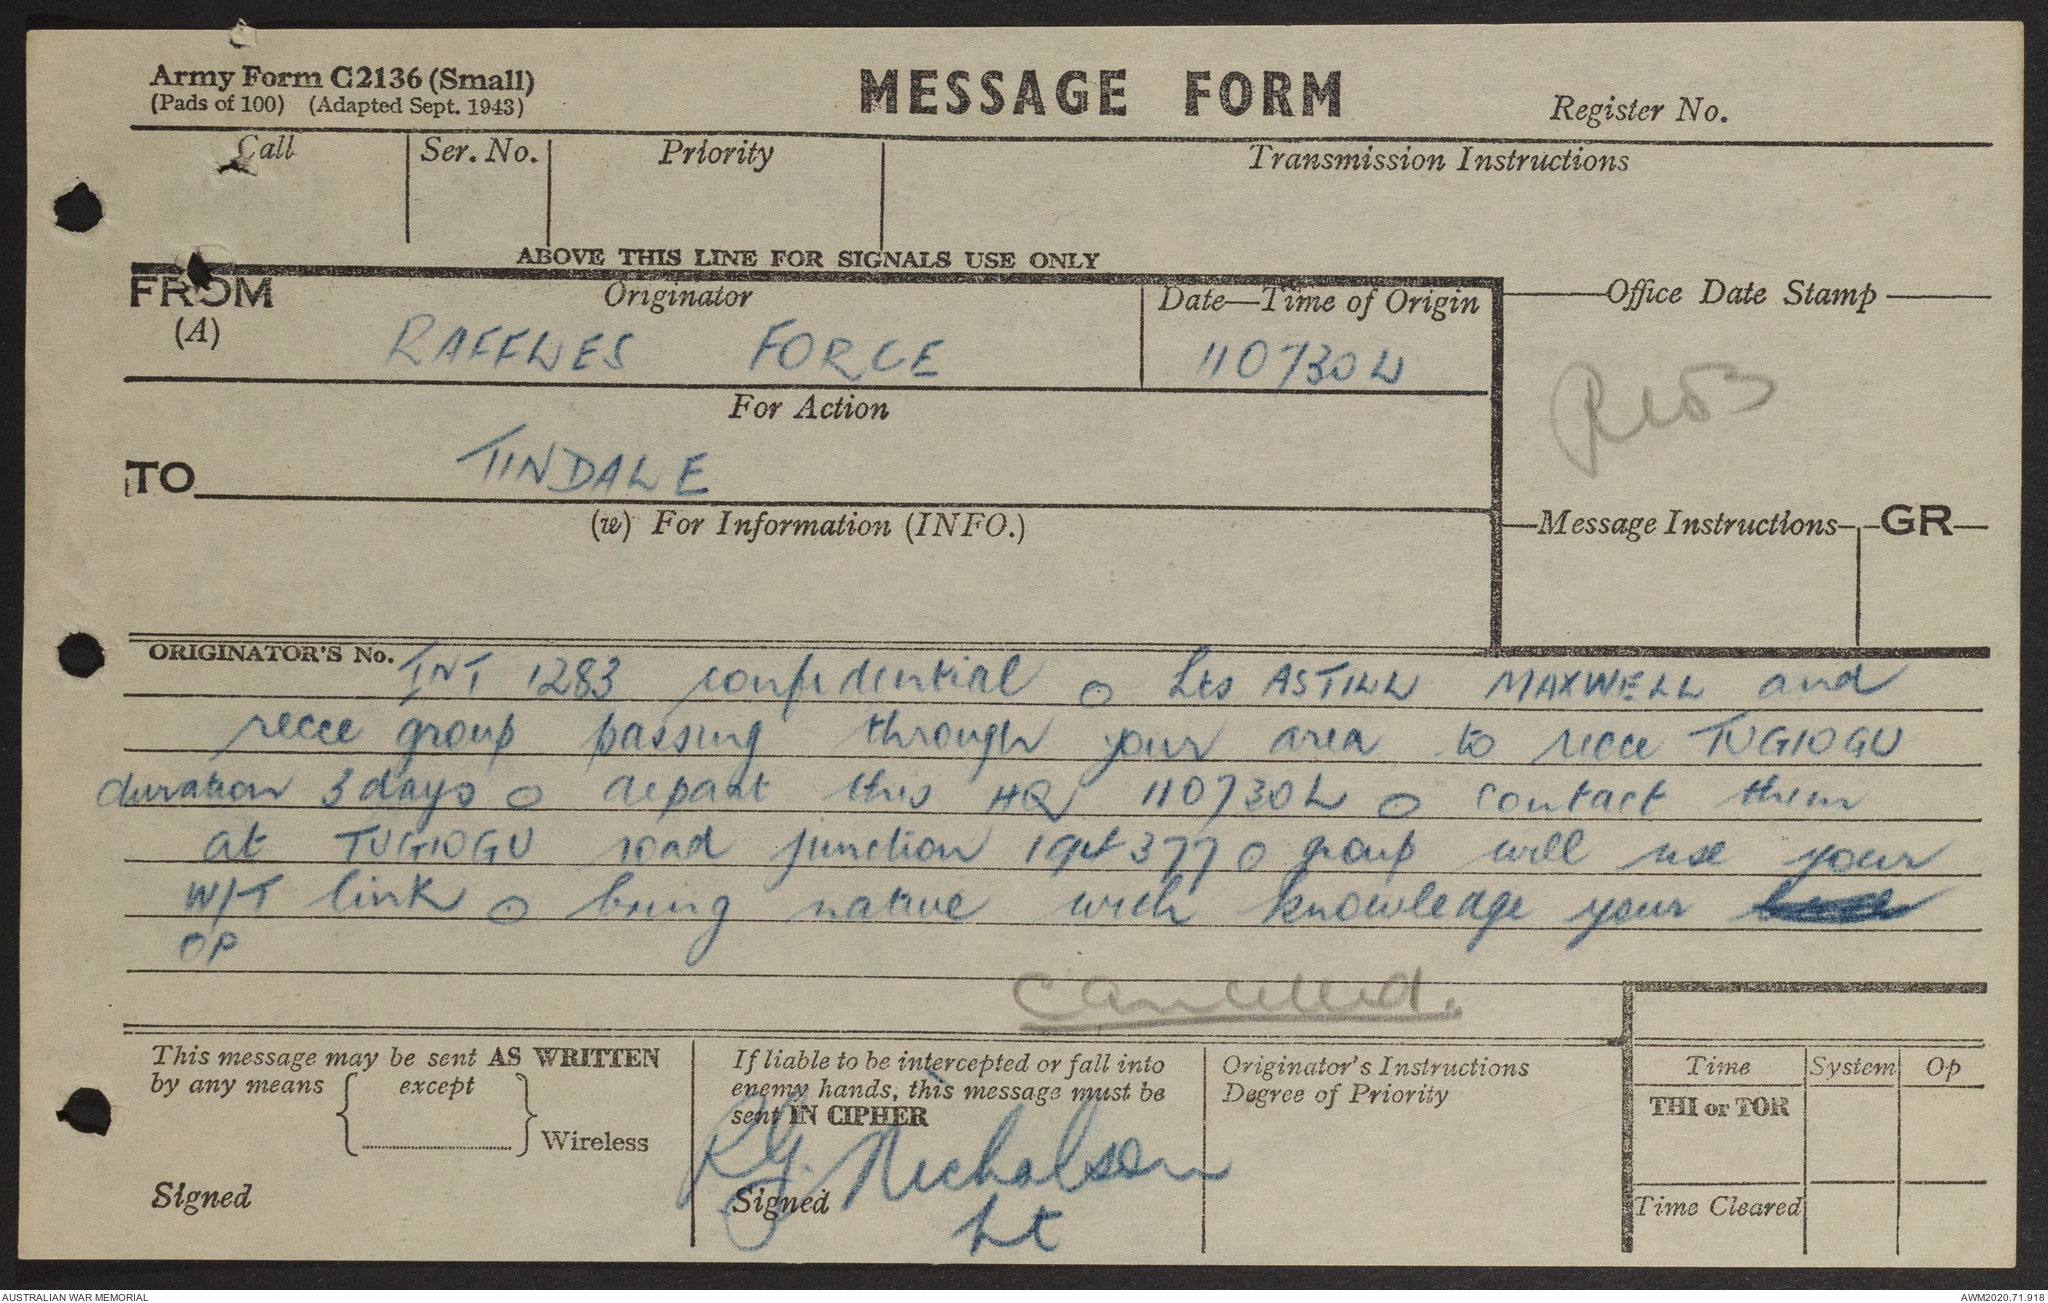 Army Form C2136 (Small)
(Pads of 100) (Adapted Sept. 1943)
MESSAGE FORM
Register No.
Call
Ser. No.
Priority
Transmission Instructions
ABOVE THIS LINE FOR SIGNALS USE ONLY
FROM
(A)
Originator
RAFFLES FORCE
Date—Time of Origin
110730L
Office Date Stamp
For Action
TO
TINDALE
(w) For Information (INFO.)
Message Instructions
GR
ORIGINATOR'S No.
INT 1283 confidential o Lts ASTILL MAXWELL and
recce group passing through your area to recce TUGIOGU
duration 3 days o depart this HQ 110730L o contact them
at TUGIOGU road junction 194377 o group will use your
W/T link o bring native with knowledge your
OP
cancelled.
This message may be sent AS WRITTEN
by any means except
Wireless
Signed
If liable to be intercepted or fall into
enemy hands, this message must be
sent IN CIPHER
Signed
RG. Nicholson
Lt
Originator's Instructions
Degree of Priority
Time System Op
THI or TOR
Time Cleared
AUSTRALIAN WAR MEMORIAL
AWM2020.71.918